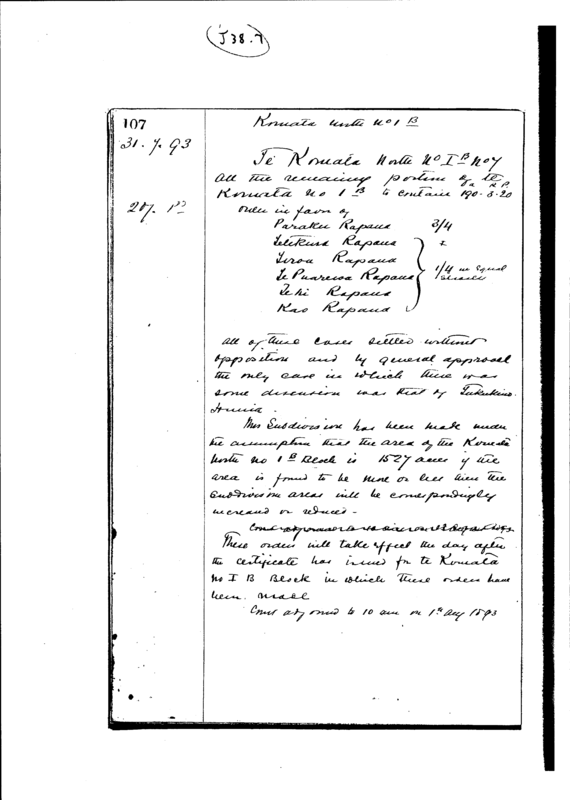 J38.7
107
Komata North No 1 B
31. 7. 93
Te Komata North No I B No 7
All the remaining portion of te
a r p
Komata No 1 B to contain 190-3-20
Order in favor of
Paraku Rapana 3/4
Rapana
Rapana
Te Puarewa Rapana 1/4 in equal shares
Rapana
Kao Rapana
All of these cases settled without
opposition and by general approval
the only case in which there was
some discussion was that of Tukukino
This Subdivision has been made under
the assumption that the area of the Komata
North No 1 B Block is 1527 acres if the
area is found to be more or less then the
Subdivision areas will be correspondingly
increased or reduced -
These orders will take effect the day after
the certificate has issued for te Komata
No I B Block in which these orders have
been made
Court adjourned to 10 am on 1st Aug 1893